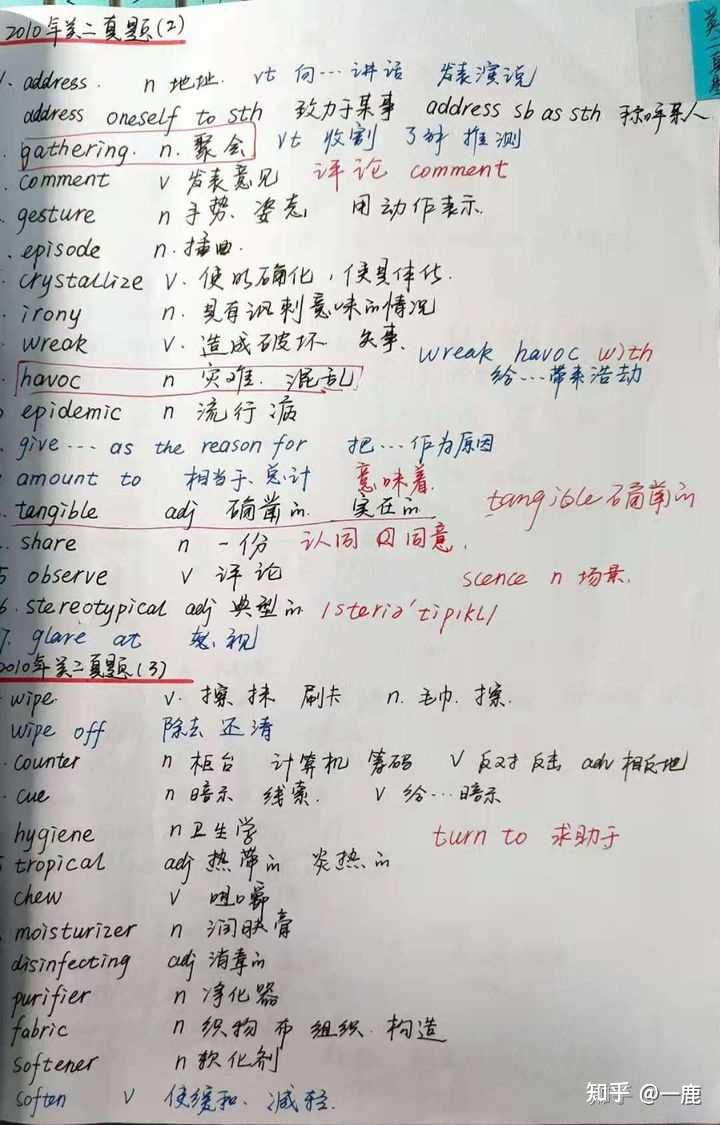 2010年英二真题(2)
address. n 地址. vt 向…讲话 发表演说
address oneself to sth 致力于某事 address sb as sth 称呼某人
gathering. n. 聚会 vt 收割 了解 推测
comment v 发表意见 评论 comment
gesture n 手势. 姿态 用动作表示.
episode n. 插曲.
crystallize v. 使明确化, 使具体化.
irony n. 具有讽刺意味的情况
wreak v. 造成破坏 失事. wreak havoc with
havoc n 灾难. 混乱 给…带来浩劫
epidemic n 流行病
give … as the reason for 把…作为原因
amount to 相当于、总计 意味着.
tangible adj 确凿的. 实在的 tangible 确凿的
share n 一份 认同 同意.
5 observe v 评论 scence n 场景.
6. stereotypical adj 典型的 /steriə'tipikl/
7. glare at 怒视
2010年英二真题(3)
wipe. v. 擦 抹 刷卡 n. 毛巾. 擦.
wipe off 除去 还清
counter n 柜台 计算机 筹码 v 反对 反击 adv 相反地
cue n 暗示 线索. v 给…暗示
hygiene n 卫生学 turn to 求助于
tropical adj 热带的 炎热的
chew v 咀嚼
moisturizer n 润肤膏
disinfecting adj 消毒的
purifier n 净化器
fabric n 织物 布 组织. 构造
softener n 软化剂
soften v 使缓和. 减轻.
知乎 @一鹿